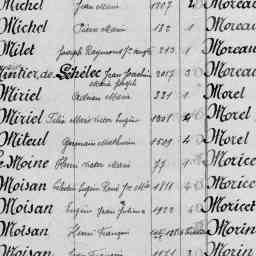 Michel Jean Marie 1707 2 Moreau
Michel Pierre Marie 132 1 Moreau
Milet Joseph Raymond 213 1 Moreau
Mintier, de Lehélec Jean Joachim Marie Joseph 2017 3 Moreau
Miriel Adrien Marie 321 1 Morel
Miriel Félix Marie Victor Eugène 1008 4 Morel
Miteul Germain Mathurin 1509 4 Morel
le Moine Henri Victor Marie 77 1 Morice
Moisan Eugène René J. Mie 1818 4 Morice
Moisan Eugène Jean Julien 1922 4 Moricet
Moisan Henri François Morin
Moisan Jean François 1071 Morin